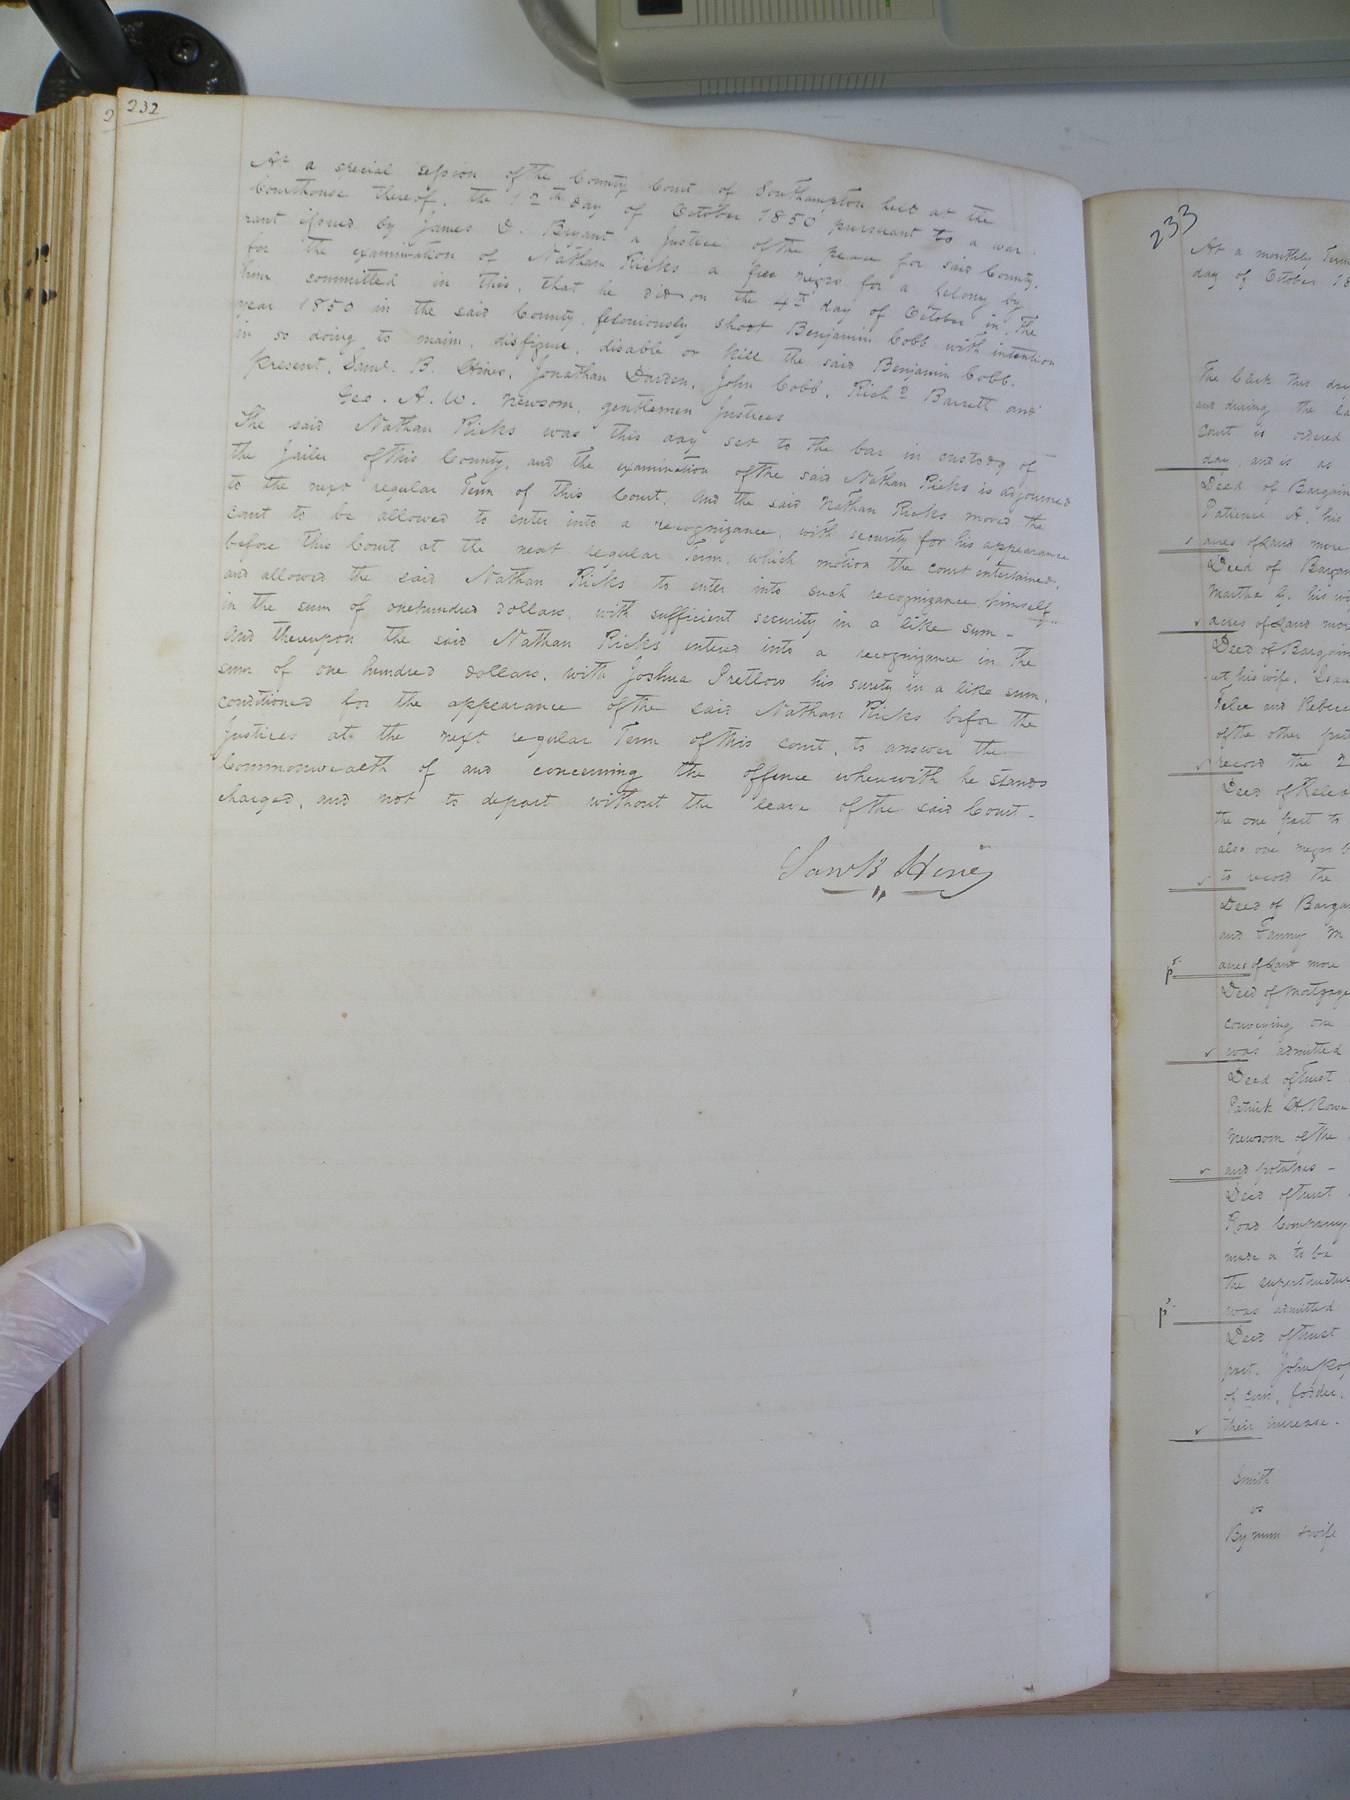 232
At a special session of the County Court of Southampton held at the
Courthouse thereof, the 12th day of October 1850 pursuant to a war-
rant issued by James D. Bryant a Justice of the peace for said County,
for the examination of Nathan Ricks a free negro for a felony by
him committed in this, that he did on the 4th day of October in the
year 1850 in the said County, feloniously shoot Benjamin Cobb with intention
in so doing to maim, disfigure, disable or kill the said Benjamin Cobb.
Present, Saml. B. Hines, Jonathan Darden, John Cobb, Richd Barrett and
Geo. A. W. Newsom, gentlemen Justices
The said Nathan Ricks was this day set to the bar in custody of
the Jailer of this County, and the examination of the said Nathan Ricks is adjourned
to the next regular Term of this Court. And the said Nathan Ricks moved the
court to be allowed to enter into a recognizance, with security for his appearance
before this Court at the next regular Term, which motion the court entertained,
and allowed the said Nathan Ricks to enter into such recognizance himself
in the sum of onehundred dollars, with sufficient security in a like sum -
And thereupon the said Nathan Ricks entered into a recognizance in the
sum of one hundred dollars, with Joshua Pretlow his surety in a like sum,
conditioned for the appearance of the said Nathan Ricks before the
Justices at the next regular Term of this court, to answer the
Commonwealth of and concerning the offence wherewith he stands
charged, and not to depart without the leave of the said Court -
Saml B Hines
233
At a monthly Term
day of October 18
and during the
Court is ordered
day, and is as
Deed of Bargain
Patience A. his
acres of Land more
Deed of Bargain
Martha G. his wi
acres of Land mor
Deed of Bargain
his wife,
and Rebecc
of the other par
record the 2
Deed of Relea
the one part to
also one negro b
to record the
Deed of Bargai
and Fanny M
acres of Land more
Deed of Mortgage
conveying one
was admitted
Deed of trust
Patrick H. Rowe
Newsom of the
and potatoes -
Deed of trust
Road Company
made or to be
the superstructur
was admitted
Deed of trust
part, John
of corn, fodder,
their increase -
Smith
vs
Bynum & wife